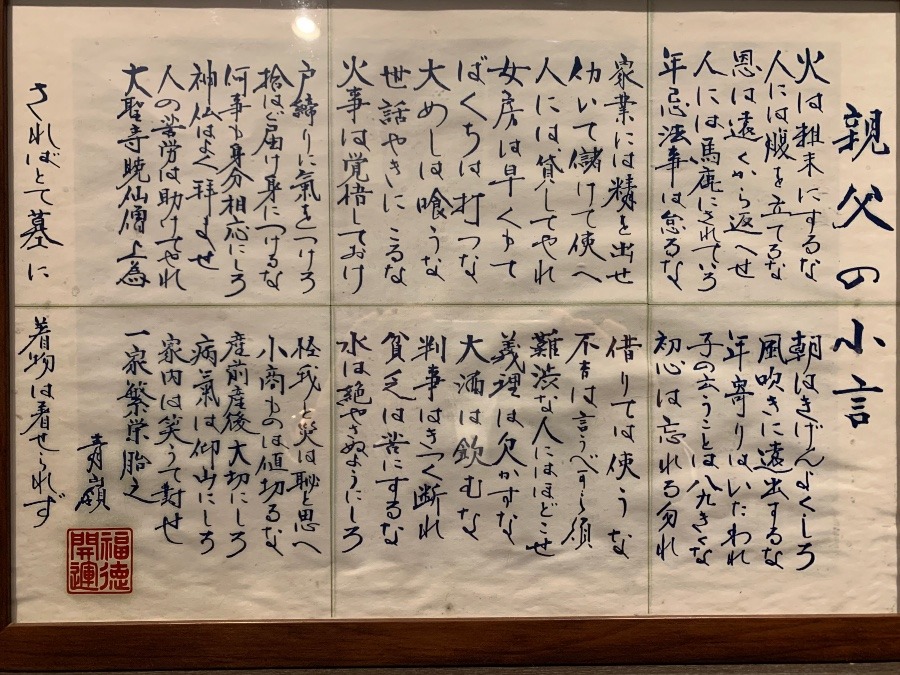 親父の小言
火は粗末にするな
朝はきげんよくしろ
人には腹を立てるな
風吹きに遠出するな
恩は遠くから返へせ
年寄りはいたわれ
人には馬鹿にされていろ
子の言うことは八九きくな
年忌法事は怠るな
初心は忘れる勿れ
家業には精を出せ
借りては使うな
仂いて儲けて使へ
不吉は言うべからず須
人には貸してやれ
難渋な人にはほどこせ
女房は早くもて
義理は欠かすな
ばくちは打つな
大酒は飲むな
大めしは喰うな
判事はきつく断れ
世話やきにこるな
貧乏は苦にするな
火事は覚悟しておけ
水は絶やさぬようにしろ
戸締りに氣をつけろ
怪我と災は恥と思へ
拾はば届け身につけるな
小商ものは値切るな
何事も身分相応にしろ
産前産後大切にしろ
神仏はよく拝ませ
病氣は仰山にしろ
人の苦労は助けてやれ
家内は笑うて封せ
大聖寺暁仙僧上為
一家繁栄胎之
青嶺
さればとて墓に
着物は着せられず
福徳
開運